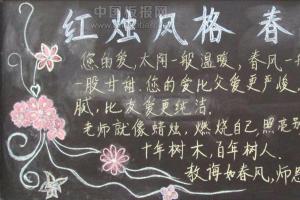 中国板报网
红烛风格 春
您的爱,太阳一般温暖,春风一般
一股甘甜.您的爱比父爱更严峻
腻,比友爱更纯洁.
老师就像蜡烛,燃烧自己,照亮别
十年树木,百年树人.
教诲如春风,师恩